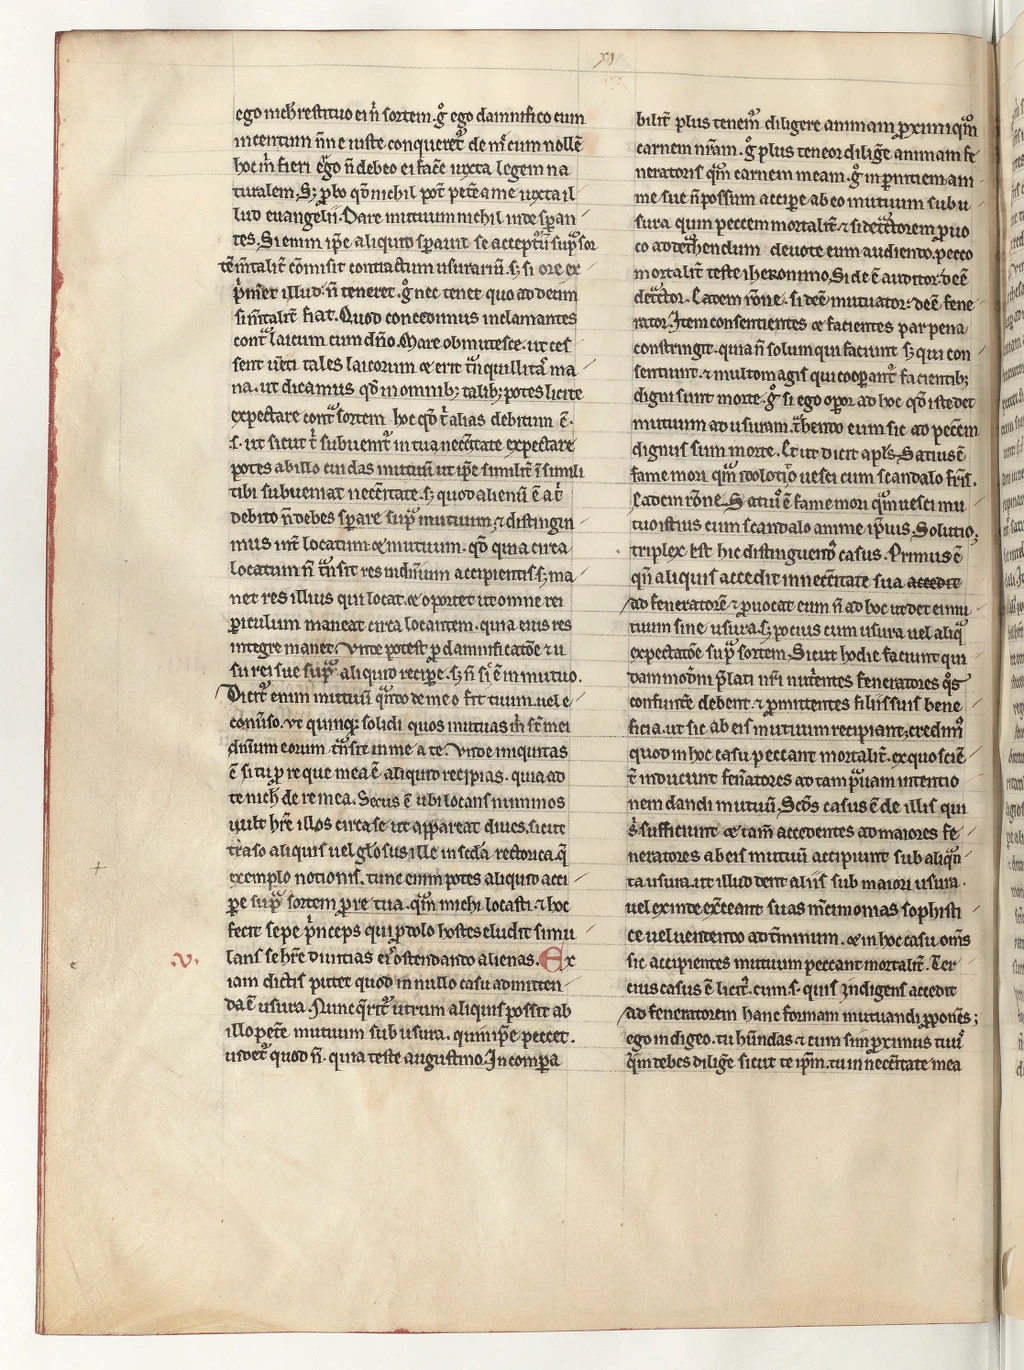 XI
ego nich restituo ei ñ sortem. g̊ ego damnifico eum
in centum ñne iuste conqueret᷒ de m̄ cum nollē
hoc m̄ fieri ẽgo ñ debeo ei facẽ iuxta legem na
turalem. S; ꝓbo qđ nichil pot̃ petẽ a me iuxta il
lud euangelii. Dare mutuum nichil inde sꝑan
tes. Si enim ip̃e aliquid sꝑauit se
m̃talit̃ cõmisit contractum usurariũ. s; si ore ex
p̃misit illud. ñ teneret᷒. g̊ nec tenet᷒ quo ad deum
si m̃talit̃ fiat. Quod concedimus inclamantes
cont̃ laicum cum dño. Mare obmutesce. ut ces
sent uẽti tales laicorum ⁊ erit t̃nquillitas ma
na. ut dicamus qđ in omnib; talib; potes licite
expectare cont̃ sortem hoc qđ t̃ alias debitum ẽ.
.s. ut sicut t̃ subuenit᷒ in tua necc̃itate expectare
potes ab illo cui das mutuũ ut ip̃e similit̃ ĩ simili
tibi subueniat necc̃itate. s; quod alienũ ẽ a t̃
debito ñ debes sꝑare sup̃ mutuum. ⁊ distingui
mus int̃ locatum ⁊ mutuum. qđ quia circa
locatum ñ t̃nsit res in dñium accipientis. s; ma
net res illius qui locat. ⁊ oportet ut omne rei
ꝑiculum maneat circa locantem. quia eius res
integre manet. Vnde potest ꝓ damnificatõe ⁊ u
su rei sue sup̃ aliquid recipe. s; ñ sĩ ẽ in mutuo.
Dicit᷒ enim mutuũ q̃ndo de meo fit tuum. uel e
conũso. vt quinq; solidi quos mutuas m̃ st̃ mei
dñium eorum t̃nsit in me a te. Vnde iniquitas
ẽ si tu ꝓ re que mea ẽ aliquid recipias. quia ad
te nich̃ de re mea. Secus ẽ ubi locans nummos
uult hr̃e illos circa se ut appareat diues. sicut
traso aliquis uel gl̃osus ille in scđa rectorica. q̃
exemplo notionis. tunc enim potes aliquid acci
pe sup̃ sortem ꝓ re tua. qm̃ michi locasti. ⁊ hoc
fecit sepe p̃nceps qui ꝓ dolo hostes eludit simu
lans se hr̃e diuitias eis ostendando alienas. Ex
v.
iam dictis patet quod in nullo casu admitten
da ẽ usura. Nunc q̃rit᷒ utrum aliquis possit ab
illo petẽ mutuum sub usura. quin ip̃e peccet.
uidet᷒ quod ñ. quia teste augustino. In compa
bilit̃ plus tenem᷒ diligere animam ꝓximi q̃m
carnem nr̃am. g̊ plus teneor diligẽ animam fe
neratoris q̃m carnem meam. g̊ in ꝑniciem ani
me sue ñ possum accipe ab eo mutuum sub u
sura quin peccem mortalit̃. ⁊ si det̃ctorem ꝓuo
co ad det̃hendum deuote eum audiendo. pecco
mortalit̃ teste iheronimo. Si dẽẽ auditor. dẽẽ
det̃ctor. Eadem rõne. si dẽẽ mutuator: dẽẽ fene
rator. Item consentientes ⁊ facientes par pena
constringit. quia ñ solum qui faciunt s; qui con
sentiunt. ⁊ multo magis qui cooꝑant᷒ facientib;
digni sunt morte. g̊ si ego oꝑor ad hoc qđ iste det
mutuum ad usuram. t̃hendo eum sic ad pecc̃m
dignus sum morte. Et ut dicit apl̃s. Satius ẽ
fame mori q̃m ydolotito uesci cum scandalo fr̃is.
Eadem rõne. Satius ẽ fame mori q̃m uesci mu
tuo istius cum scandalo anime ip̃ius. Solutio;
triplex est hic distinguend᷒ casus. Primus ẽ
qñ aliquis accedit in necc̃itate sua accedit
ad feneratorẽ ⁊ ꝓuocat eum ñ ad hoc ut det ei mu
tuum sine usura. s; pocius cum usura uel aliq̃
expectatõe sup̃ sortem. Sicut hodie faciunt qui
dam modĩ p̃lati nr̃i nut̃entes feneratores q̃s
confund̃e debent. ⁊ ꝑmittentes filiis suis bene
ficia. ut sic ab eis mutuum recipiant. credim᷒
quod in hoc casu peccant mortalit̃. ex quo sciẽ
t̃ inducunt feñatores ad tam p̃uam intentio
nem dandi mutuũ. Scđs casus ẽ de illis qui
s̃ sufficiunt ⁊ tam̃ accedentes ad maiores fe
neratores ab eis mutuũ accipiunt sub aliq̃n
ta usura. ut illud dent aliis sub maiori usura.
uel ex inde exc̃ceant suas m̃cimonias sophisti
ce uel uendendo ad t̃minum. ⁊ in hoc casu om̃s
sic accipientes mutuum peccant mortalit̃. Ter
cius casus ẽ licit᷒. cum .s. quis indigens accedit
ad feneratorem hanc formam mutuandi ꝓponẽs;
ego indigeo. tu hũndas ⁊ cum sim ꝓximus tuus
q̃m debes diligẽ sicut te ip̃m. tu in necc̃itate mea